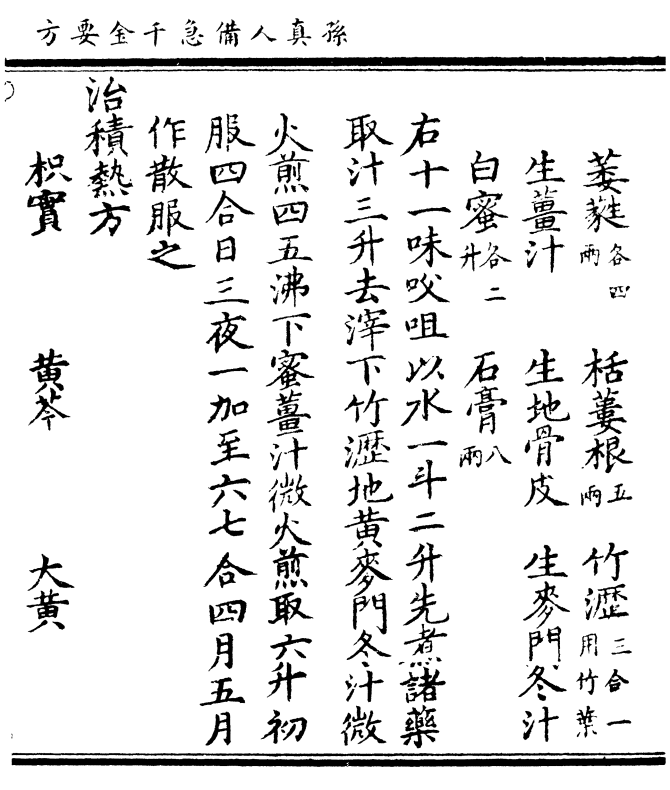 孫真人備急千金要方
萎蕤各四兩 栝蔞根五兩 竹瀝三合一用竹葉
生薑汁 生地骨皮 生麥門冬汁
白蜜各二升 石膏八兩
右十一味㕮咀以水一斗二升先煮諸藥
取汁三升去滓下竹瀝地黄麥門冬汁微
火煎四五沸下蜜薑汁微火煎取六升初
服四合日三夜一加至六七合四月五月
作散服之
治積熱方
枳實 黄芩 大黄